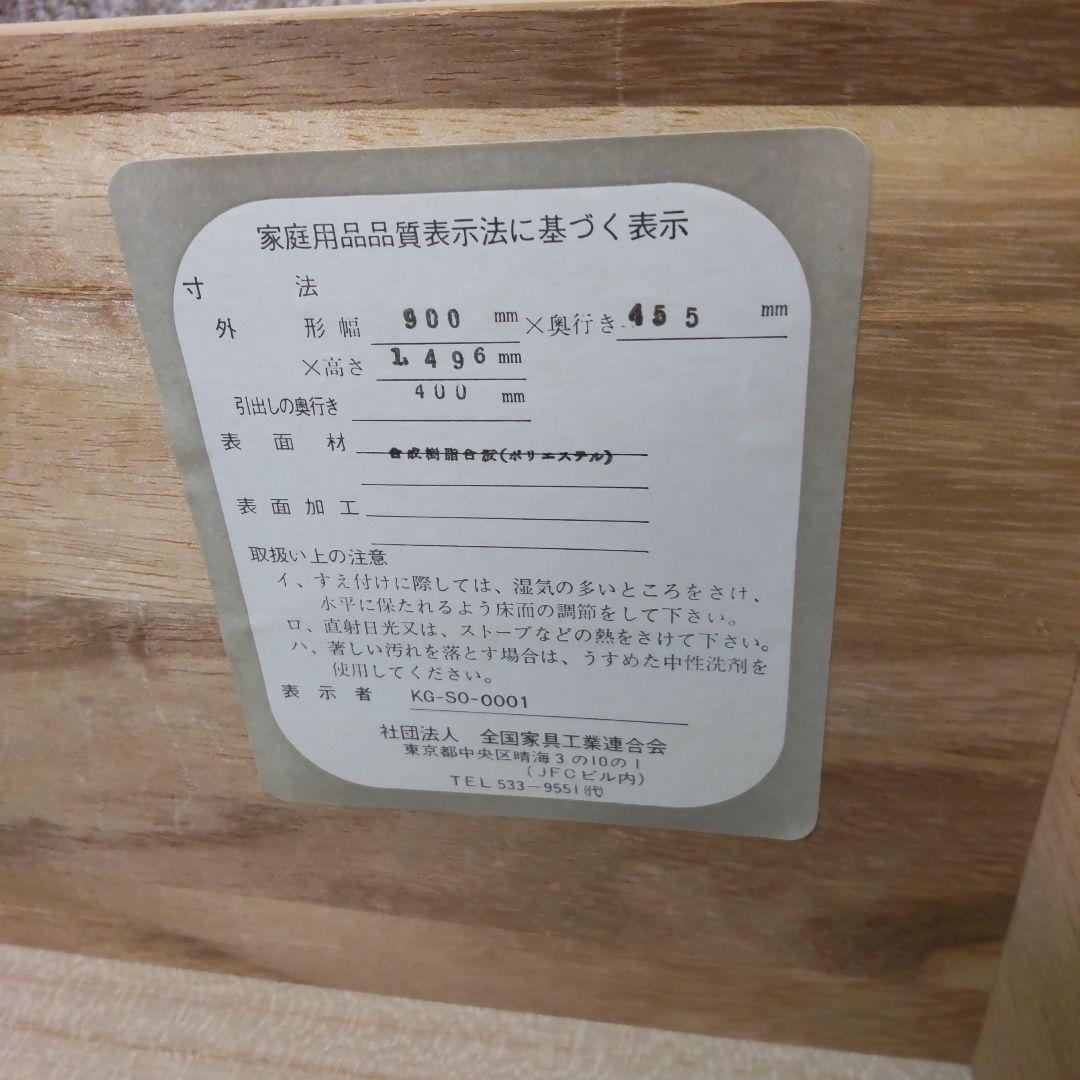 家庭用品品質表示法に基づく表示
寸法
外形幅 900 mm ×奥行き 455 mm
×高さ 1.496 mm
引出しの奥行き 400 mm
表面材 合成樹脂合板(ポリエステル)
表面加工
取扱い上の注意
イ、すえ付けに際しては、湿気の多いところをさけ、
水平に保たれるよう床面の調節をして下さい。
ロ、直射日光又は、ストーブなどの熱をさけて下さい。
ハ、著しい汚れを落とす場合は、うすめた中性洗剤を
使用してください。
表示者 KG-SO-0001
社団法人 全国家具工業連合会
東京都中央区晴海3の10の1
(JFCビル内)
TEL 533-9551㈹